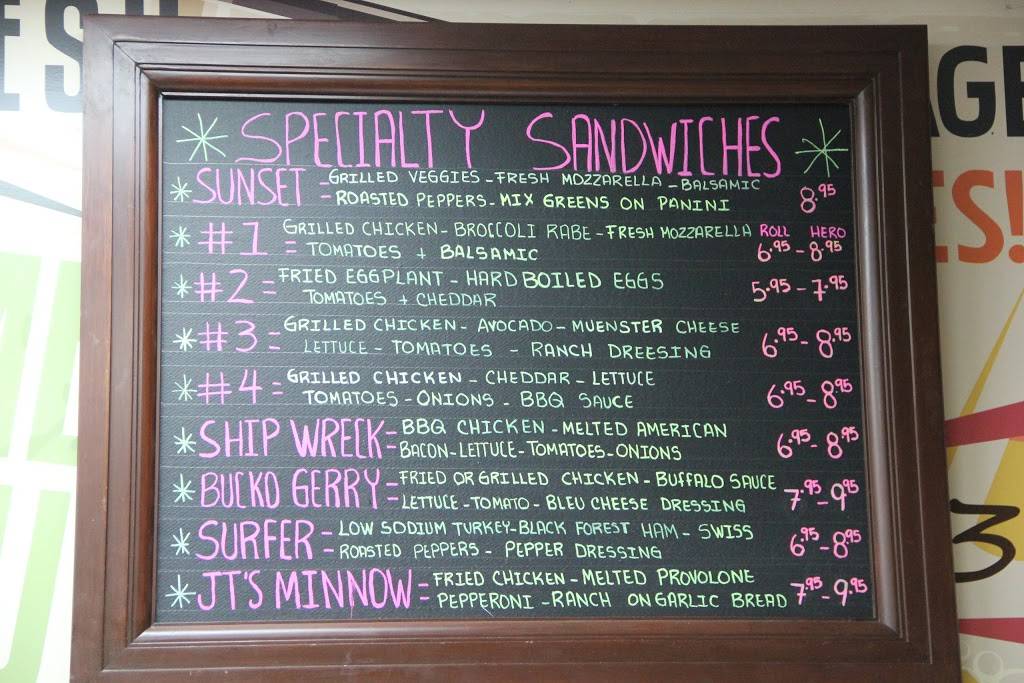 SPECIALTY SANDWICHES
SUNSET - GRILLED VEGGIES - FRESH MOZZARELLA - BALSAMIC
ROASTED PEPPERS - MIX GREENS ON PANINI 8.95
ROLL HERO
#1 = GRILLED CHICKEN - BROCCOLI RABE - FRESH MOZZARELLA
TOMATOES + BALSAMIC 6.95 - 8.95
#2 = FRIED EGGPLANT - HARD BOILED EGGS
TOMATOES + CHEDDAR 5.95 - 7.95
#3 = GRILLED CHICKEN - AVOCADO - MUENSTER CHEESE
LETTUCE - TOMATOES - RANCH DREESING 6.95 - 8.95
#4 = GRILLED CHICKEN - CHEDDAR - LETTUCE
TOMATOES - ONIONS - BBQ SAUCE 6.95 - 8.95
SHIP WRECK = BBQ CHICKEN - MELTED AMERICAN
BACON - LETTUCE - TOMATOES - ONIONS 6.95 - 8.95
BUCKO GERRY = FRIED OR GRILLED CHICKEN - BUFFALO SAUCE
LETTUCE - TOMATO - BLEU CHEESE DRESSING 7.95 - 9.95
SURFER - LOW SODIUM TURKEY - BLACK FOREST HAM - SWISS
ROASTED PEPPERS - PEPPER DRESSING 6.95 - 8.95
JT'S MINNOW = FRIED CHICKEN - MELTED PROVOLONE
PEPPERONI - RANCH ON GARLIC BREAD 7.95 - 9.95
3